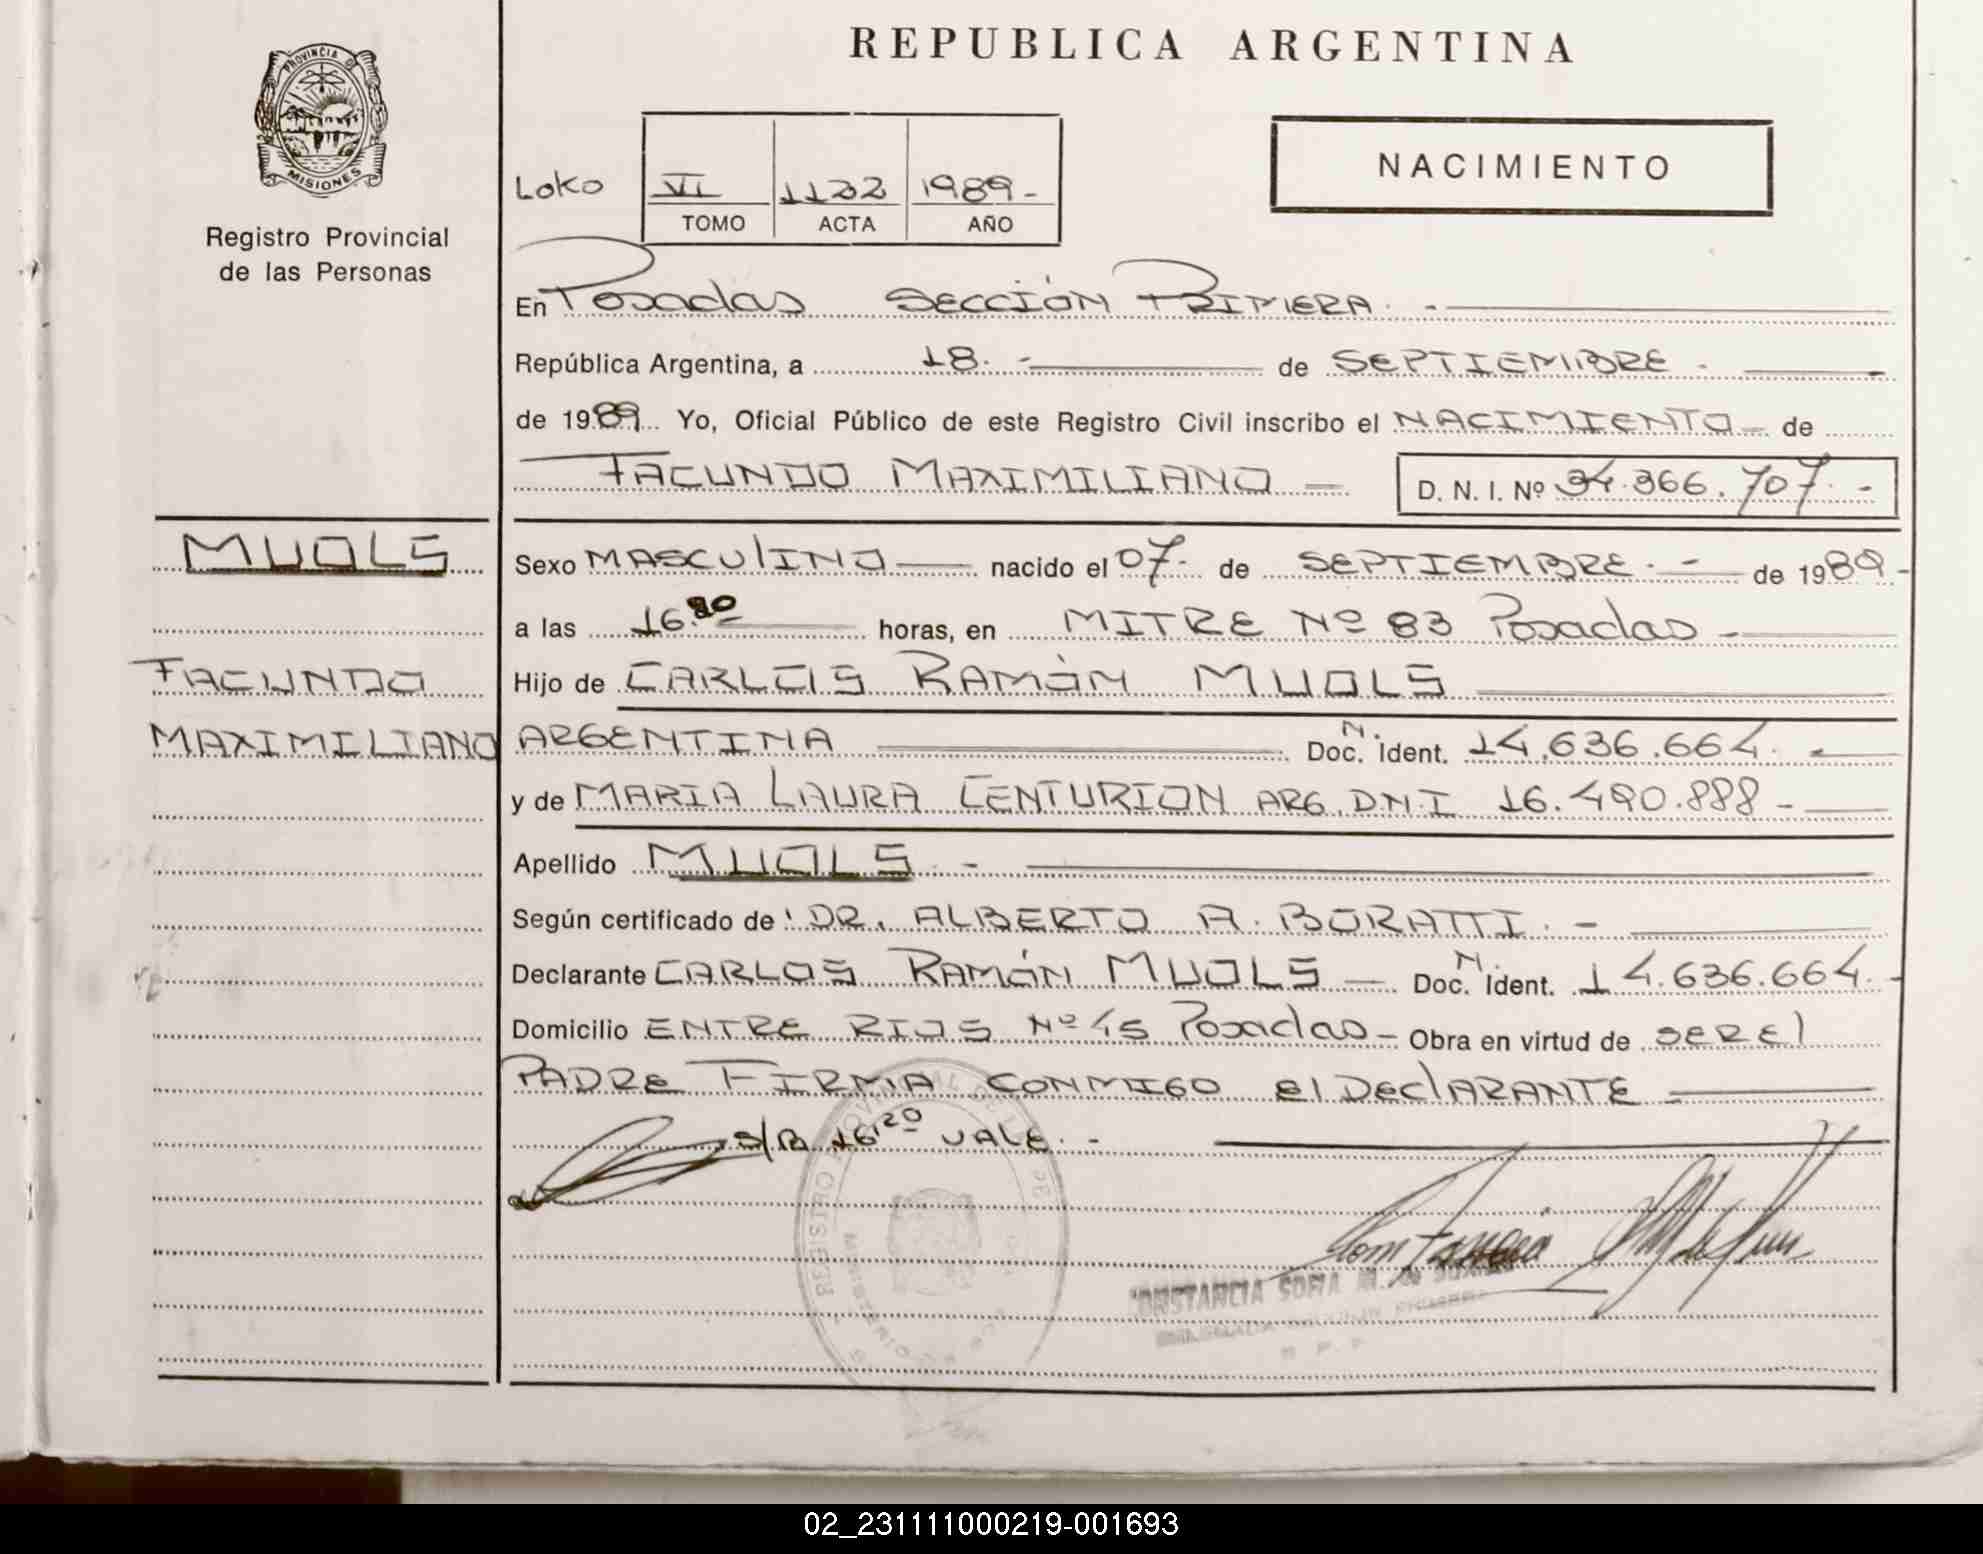 REPUBLICA ARGENTINA
PROVINCIA DE
MISIONES
Registro Provincial
de las Personas
Loko
VI 1122 1989-
TOMO ACTA AÑO
NACIMIENTO
En Posadas SECCIÓN PRIMERA. -
República Argentina, a 18. - de SEPTIEMBRE -
de 1989 Yo, Oficial Público de este Registro Civil inscribo el NACIMIENTO - de
FACUNDO MAXIMILIANO - D. N. I. Nº 34.366.707. -
MUOLS
FACUNDO
MAXIMILIANO
Sexo MASCULINO nacido el 07. de SEPTIEMBRE. - de 1989 -
a las 16.20 horas, en MITRE Nº 83 Posadas -
Hijo de CARLOS RAMÓN MUOLS
ARGENTINA Doc. N. ident. 14.636.664. -
y de MARIA LAURA CENTURION ARG. D.N.I 16.490.888 -
Apellido MUOLS. -
Según certificado de: DR. ALBERTO A. BORATTI. -
Declarante CARLOS RAMÓN MUOLS - Doc. N. ident. 14.636.664. -
Domicilio ENTRE RIOS Nº 45 Posadas - Obra en virtud de SER El
PADRE FIRMA CONMIGO El DEClARANTE -
S/B 16.20 VALE. -
CONSTANCIA SOFIA M. de
02_231111000219-001693